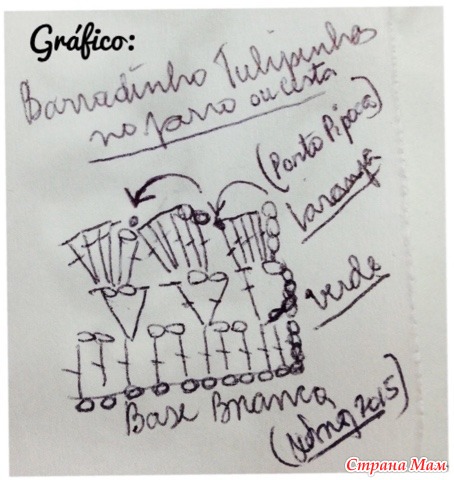 Gráfico:
Barradinho Tulipinha
no jarro ou cesta
(Ponto Pipoca)
laranja
verde
Base Branca
2015)
Страна Мам